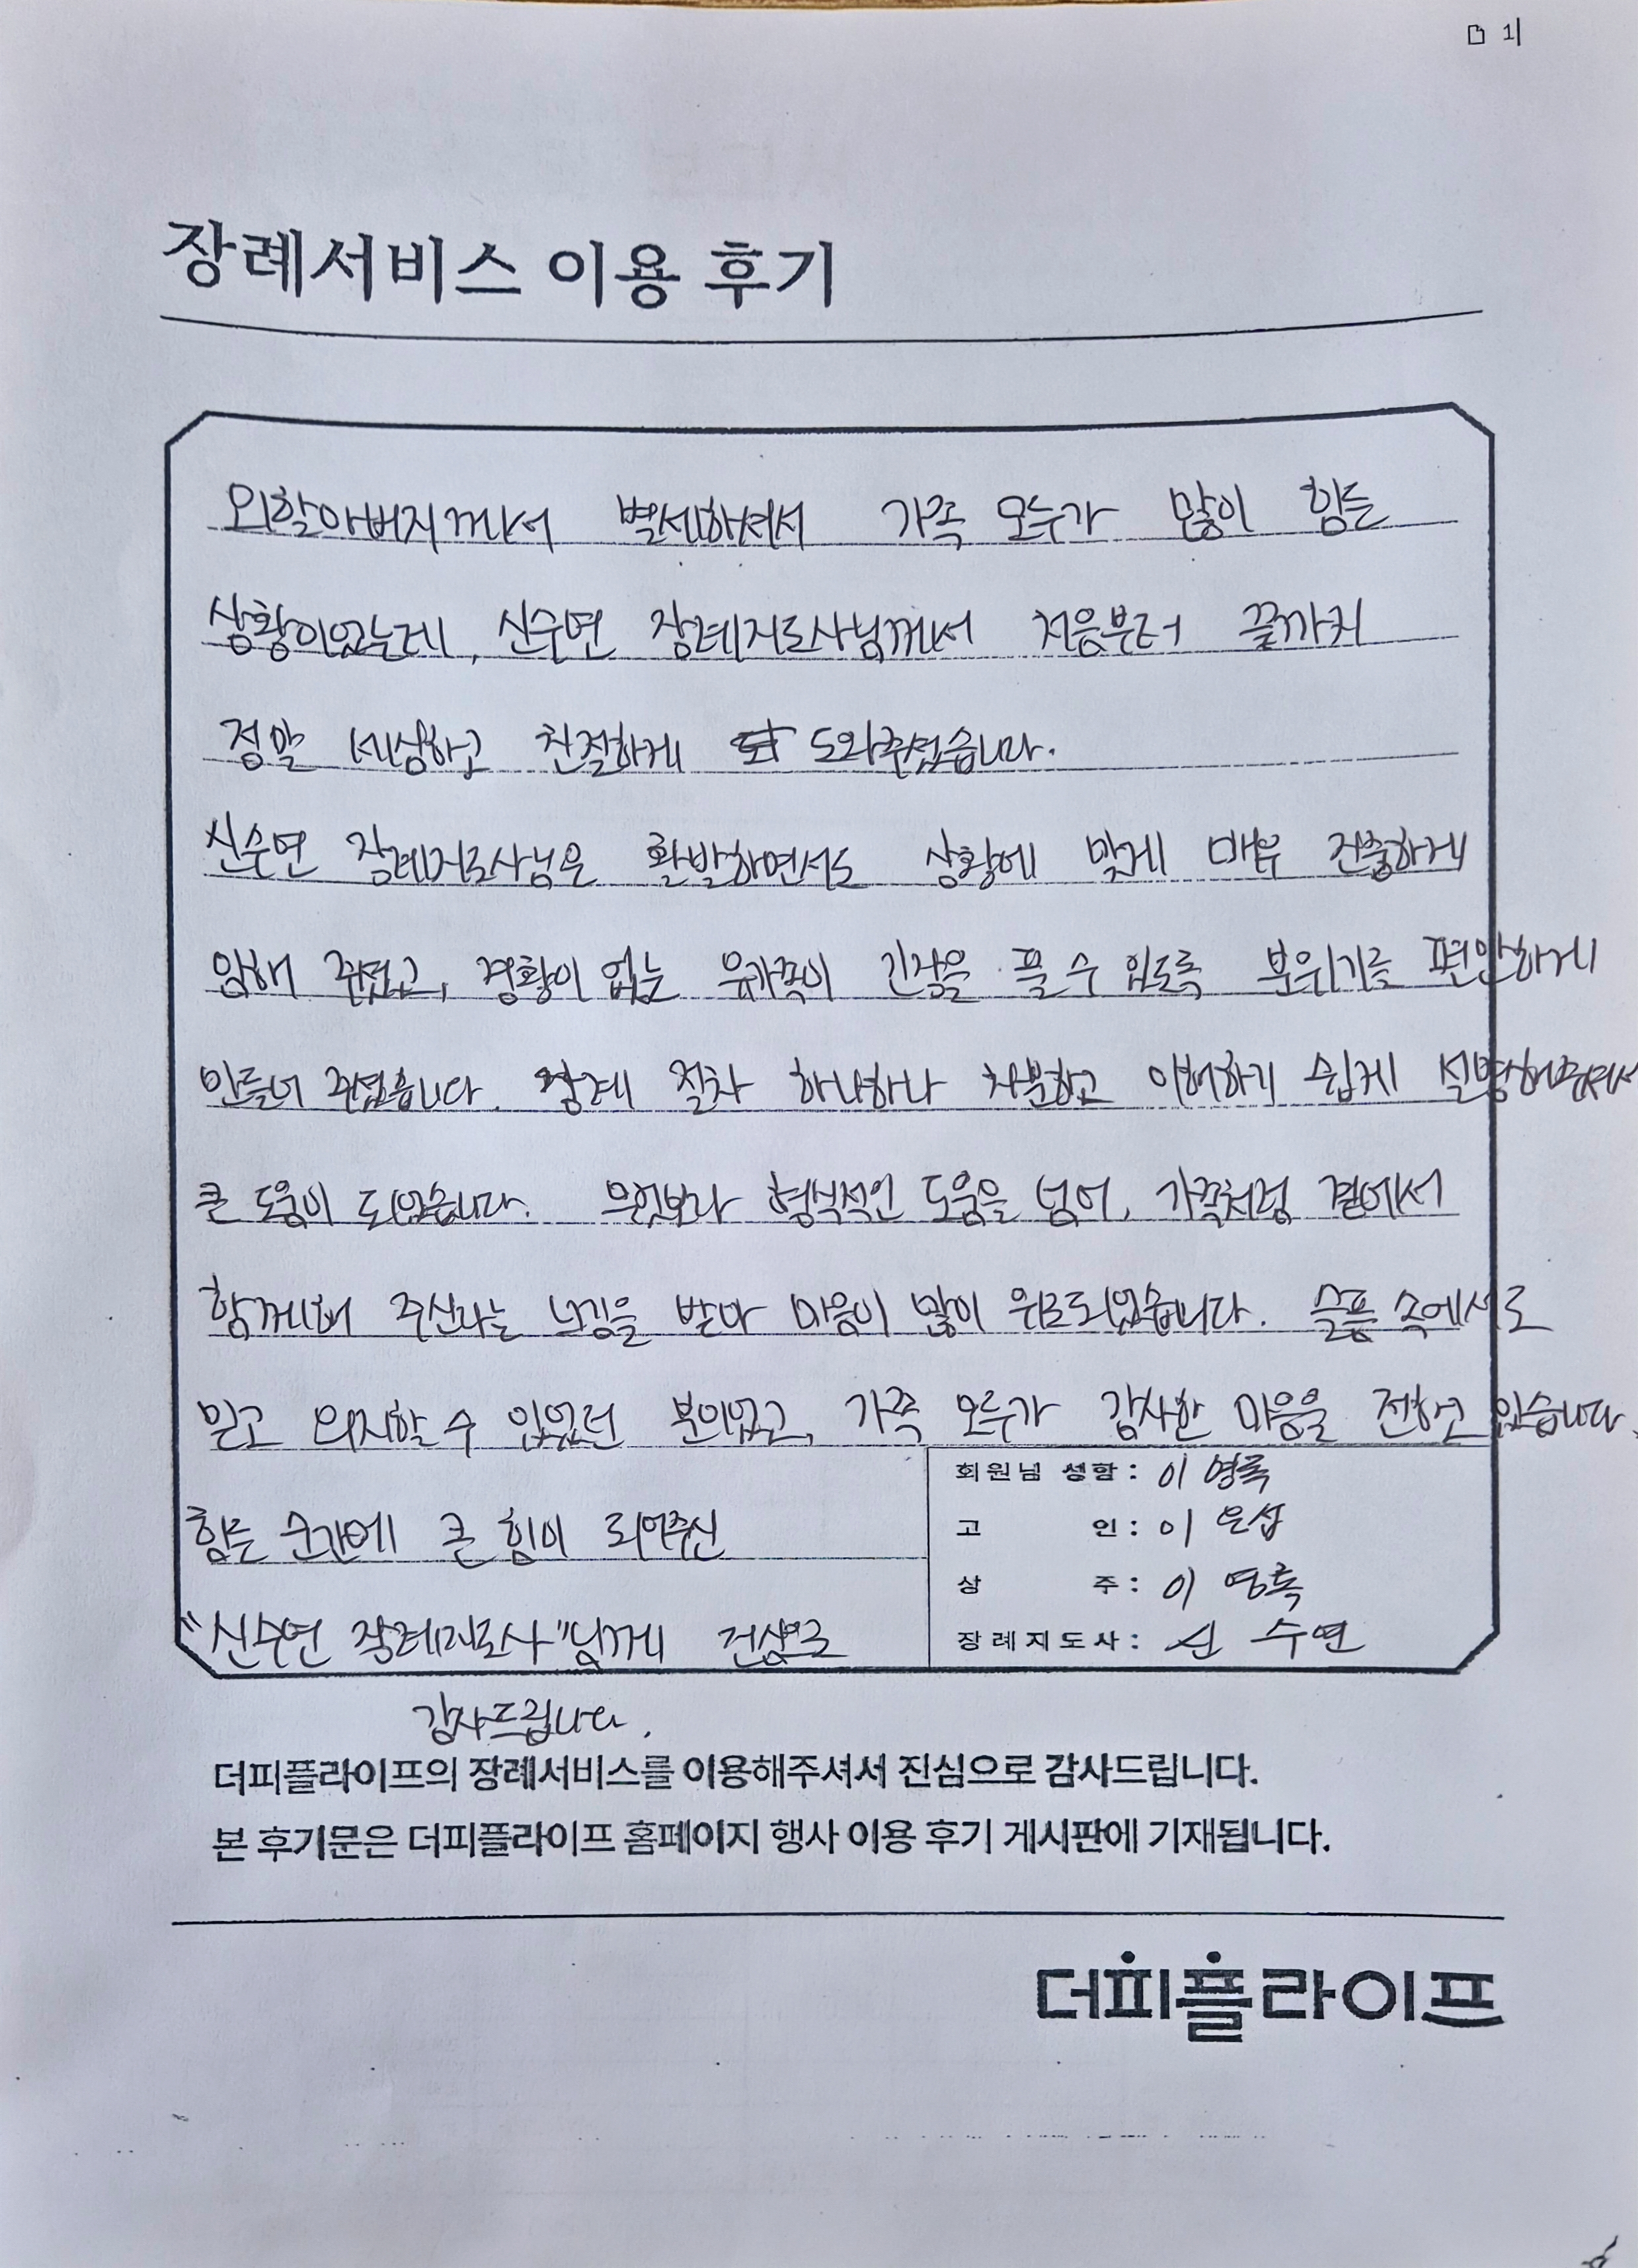 1
장례서비스 이용 후기
외할아버지께서 별세하셔서 가족 모두가 많이 힘든
상황이었는데, 신수연 장례지도사님께서 처음부터 끝까지
정말 세심하고 친절하게 도와주셨습니다.
신수연 장례지도사님은 활발하면서도 상황에 맞게 매우 진중하게
임해 주셨고, 경황이 없는 유가족이 긴장을 풀 수 있도록 분위기를 편안하게
만들어 주셨습니다. 장례 절차 하나하나 차분하고 이해하기 쉽게 설명해주셔서
큰 도움이 되었습니다. 무엇보다 형식적인 도움을 넘어, 가족처럼 곁에서
함께해 주신다는 느낌을 받아 마음이 많이 위로되었습니다. 슬픔 속에서도
믿고 의지할 수 있었던 분이었고, 가족 모두가 감사한 마음을 전하고 있습니다.
힘든 순간에 큰 힘이 되어주신
"신수연 장례지도사"님께 진심으로
감사드립니다.
회원님 성함 : 이영록
고 인 : 이은섭
상 주 : 이영록
장례지도사 : 신수연
더피플라이프의 장례서비스를 이용해주셔서 진심으로 감사드립니다.
본 후기문은 더피플라이프 홈페이지 행사 이용 후기 게시판에 기재됩니다.
더피플라이프